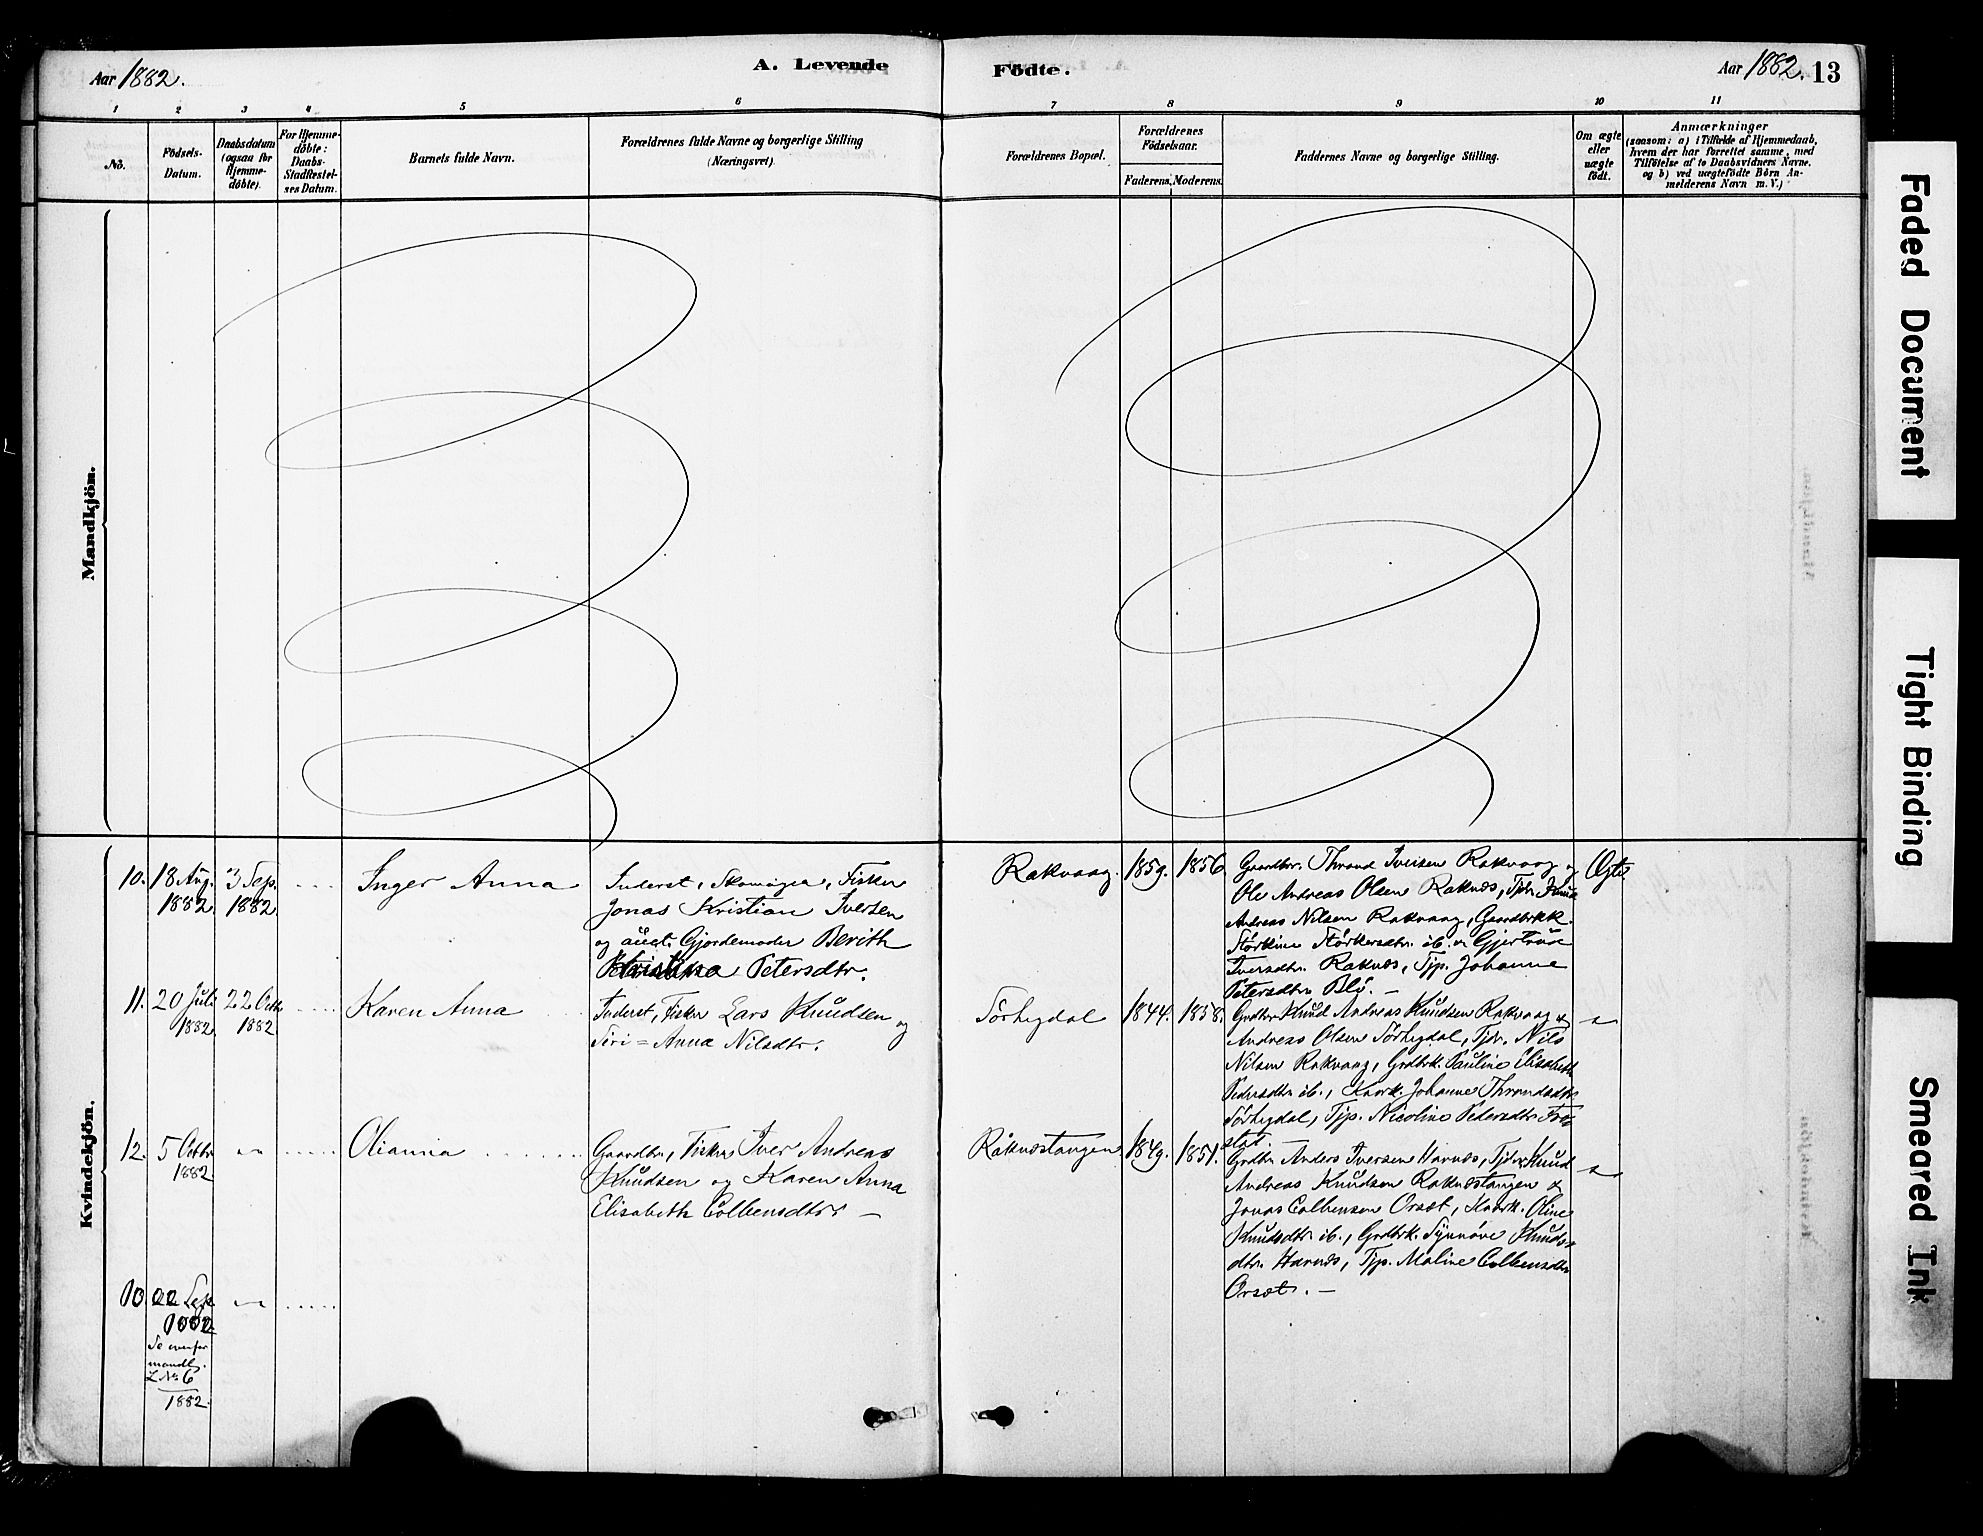 Aar 1882.
A. Levende
Födte.
Aar 1882. 13
1 2 3 4 5 6 7 8 9 10 11
No.
Födsels-
Datum.
Daabsdatum
(ogsaa for
Hjemme-
döbte).
For Hjemme-
döbte:
Daabs-
Stadfæstel-
ses Datum.
Barnets fulde Navn.
Forældrenes fulde Navne og borgerlige Stilling
(Næringsvei).
Forældrenes Bopæl.
Forældrenes
Födselsaar.
Faderens. Moderens.
Faddernes Navne og borgerlige Stilling.
Om ægte
eller
uægte
födt.
Anmærkninger
(saasom: a) i Tilfælde af Hjemmedaab,
hvem der har forrettet samme, med
Tilföielse af to Daabsvidners Navne.
og b) ved uægtefödte Börn An-
melderens Navn m. V.)
Mandkjön.
Kvindekjön.
10. 18 Aug.
1882
3 Sep.
1882
Inger Anna
Inderst, Skomager, Fisker
Jonas Kristian Iversen
og Gjordemoder Berith
Petersdtr.
Rakvaag. 1859. 1856
Gaardbr. Thrond Iversen Rakvaag og
Ole Andreas Olsen Raknæs, Tjdr. Knud
Andreas Nilsen Rakvaag, Gaardbrkk.
Størkersdtr. ib. og Gjertrud
Iversdtr. Raknæs, Tjp. Johanne
Petersdtr. Blø. –
Ægte
11. 20 Juli
1882
22 Octb
1882
Karen Anna
Inderst, Fisker Lars Knudsen og
Siri = Anna Nilsdtr.
Sörhegdal 1844. 1858.
Grdbr Knud Andreas Knudsen Rakvaag &
Andreas Olsen Sörhegdal, Tjdr. Nils
Nilsen Rakvaag, Grdbrk. Pauline Elisabeth
Pedersdtr ib., Kaark. Johanne Throndsdtr
Sörhegdal, Tjp. Nicoline Petersdtr
12. 5 Octbr
1882
Olianna
Gaardbr, Fisker Iver Andreas
Knudsen og Karen Anna
Elisabeth Colbensdtr –
Raknæstangen 1849. 1851.
Grdbr Anders Iversen Harnæs, Tjdr Knud
Andreas Knudsen Raknæstangen &
Jonas Colbensen Orsæt, Kaark. Oline
Knudsdtr ib., Grdbrk. Synnøve Knuds-
dtr. Harnæs, Tjp. Maline Colbensdtr
Orsæt. –
1882
No 6
1882.
Faded Document
Tight Binding
Smeared Ink